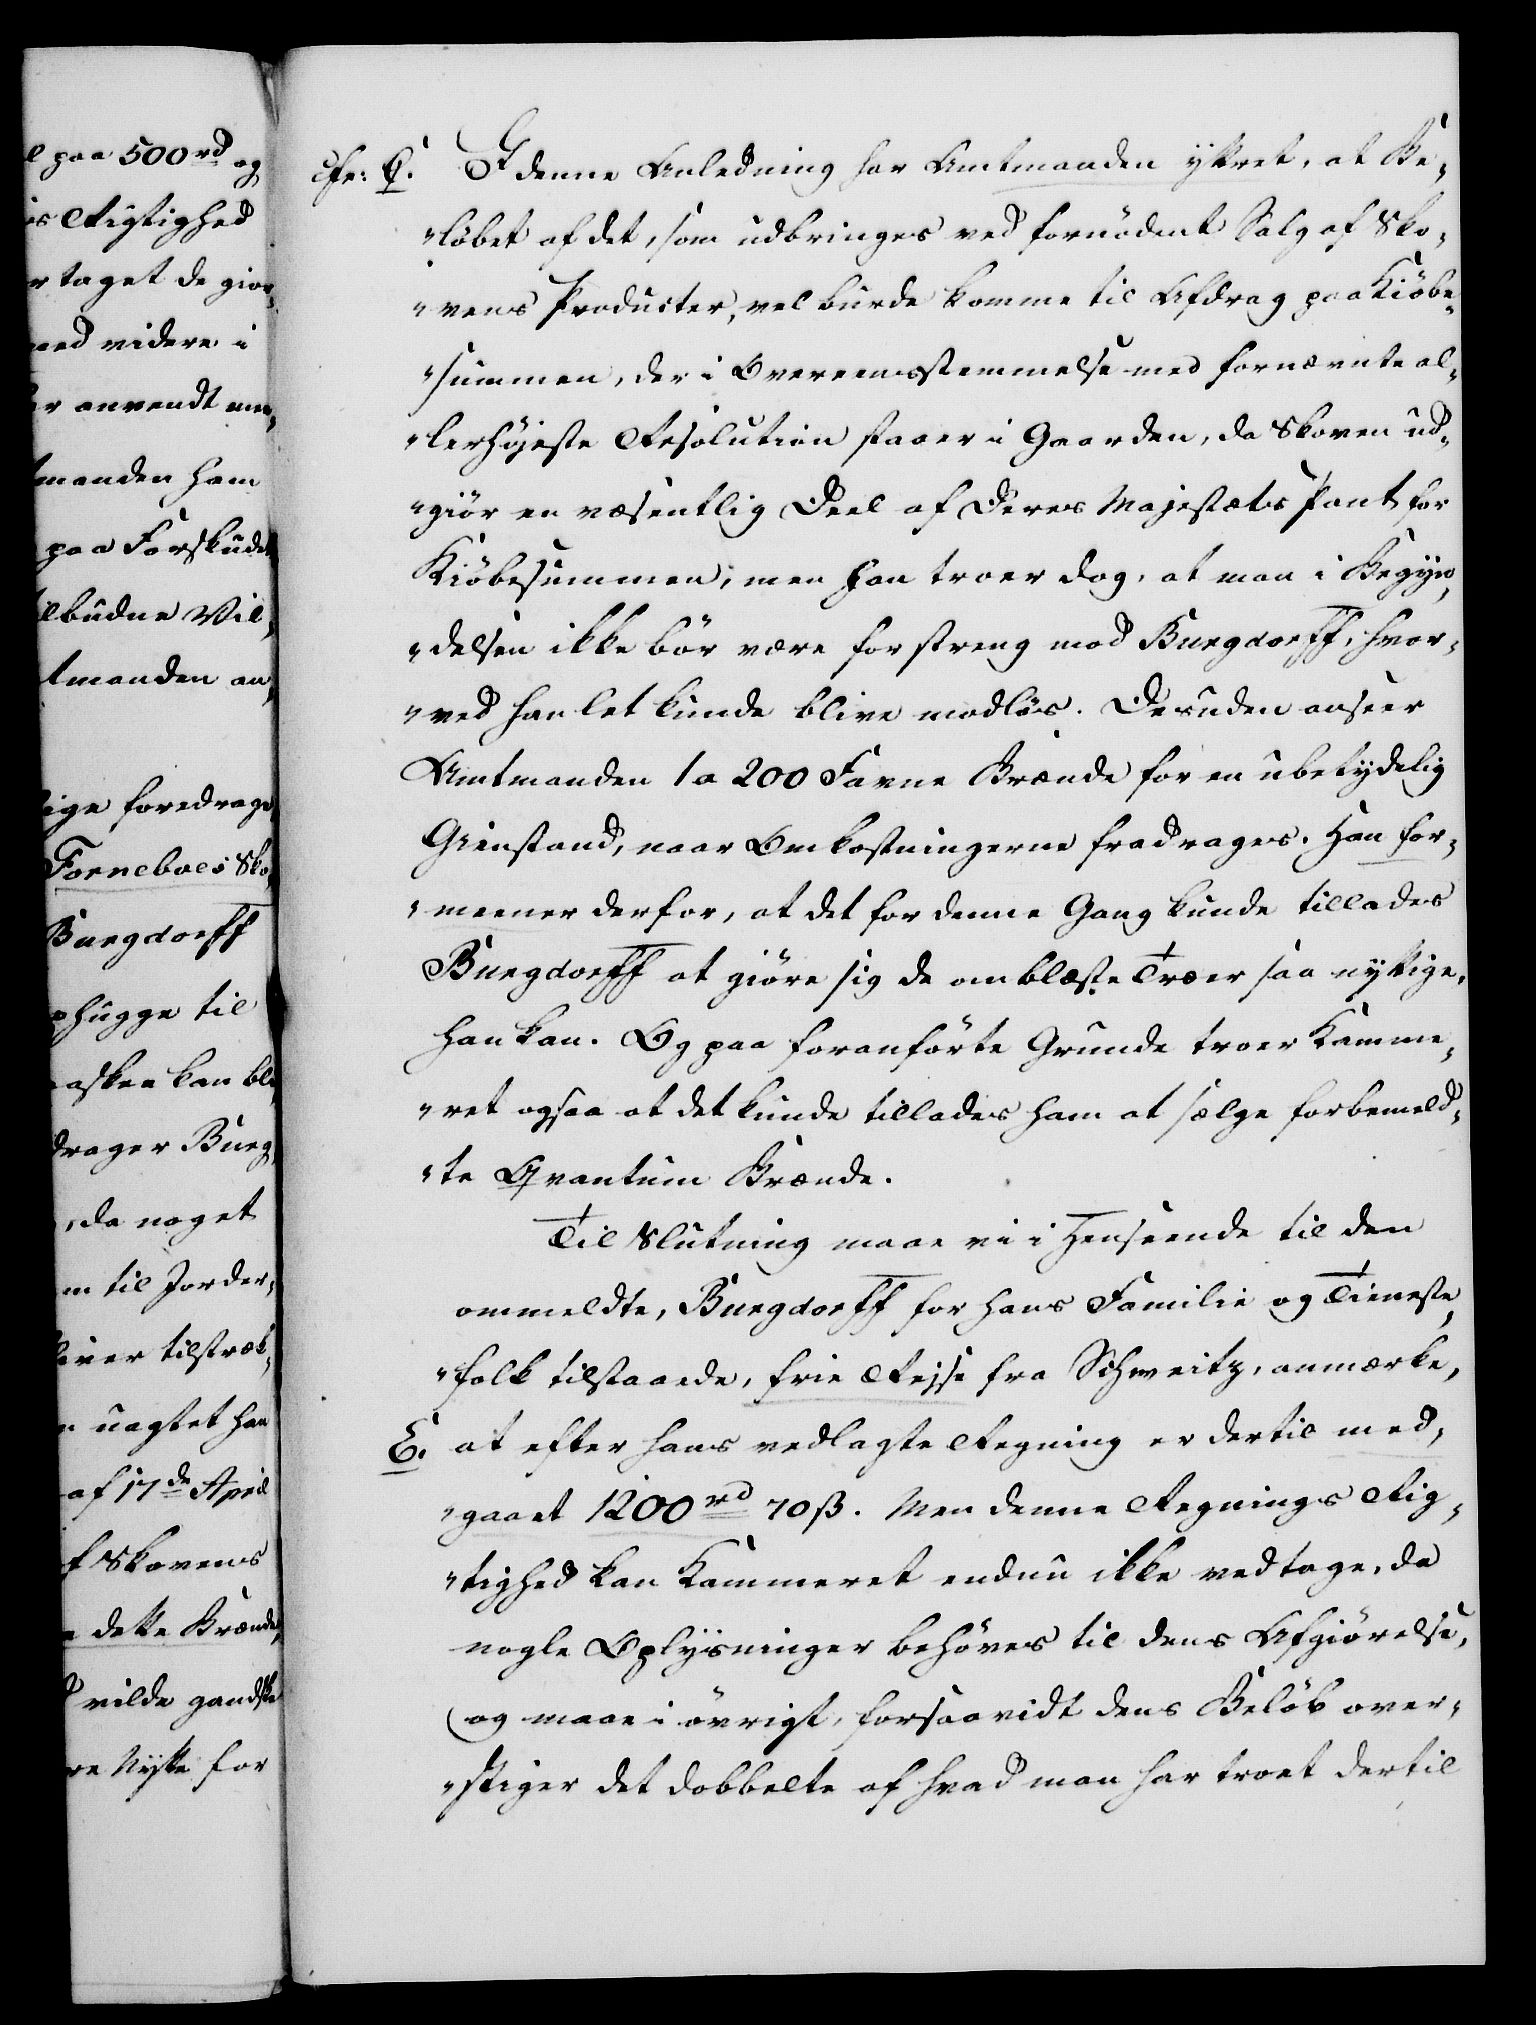 l paa 500 rd og
es Rigtighed
r taget de gior„
med videre i
er anvendt me„
manden ham
paa Forskudet
lbudne Vil„
tmanden an„
ige foredrage
Forneboes Sko„
Burgdorff
phugge til
asken kan bli„
drager Burg„
, da noget
m til Jorder„
liver tilstræk„
n uagtet han
af 17de April
f Skovens
e dette Brænde,
d vilde gandske
re Nytte for
cfr: C. I denne Anledning har Amtmanden yttret, at Be„
„løbet af det, som udbringes ved fornødent Salg af Sko„
„vens Producter, vel burde komme til Afdrag paa Kiøbe„
„summen, der i Overeensstemmelse med fornævnte al„
„lerhøjeste Resolution staaer i Gaarden, da Skoven ud„
„giør en væsentlig Deel af Deres Majestæts Pant for
Kiøbesummen; men han troer dog, at man i Begyn„
„delsen ikke bør være for streng mod Burgdorff, hvor„
„ved han let kunde blive modløs. Desuden anseer
Amtmanden 1 a 200 Favne Brænde for en ubetydelig
Gienstand, naar Omkostningerne fradrages. Han for„
„meener derfor, at det for denne Gang kunde tillades
Burgdorff at giøre sig de omblæste Træer saa nyttige,
han kan. Og paa foranførte Grunde troer Kamme„
„ret ogsaa at det kunde tillades ham at sælge forbemeld„
„te Qvantum Brænde.
Til Slutning maae vi i Henseende til den
ommeldte, Burgdorff for hans Familie og Tieneste„
„folk tilstaaede, frie Rejse fra Schweitz, anmærke,
E. at efter hans vedlagte Regning er dertil med„
„gaaet 1200 rd 70 ß. Men denne Regnings Rig„
„tighed kan Kammeret endnu ikke vedtage, da
nogle Oplysninger behøves til dens Afgiørelse,
(og maae i øvrigt, forsaavidt dens Beløb over„
„stiger det dobbelte af hvad man har troet dertil